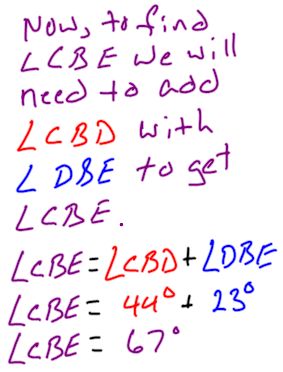 Now, to find
∠CBE we will
need to add
∠CBD with
∠DBE to get
∠CBE.
∠CBE = ∠CBD + ∠DBE
∠CBE = 44° + 23°
∠CBE = 67°